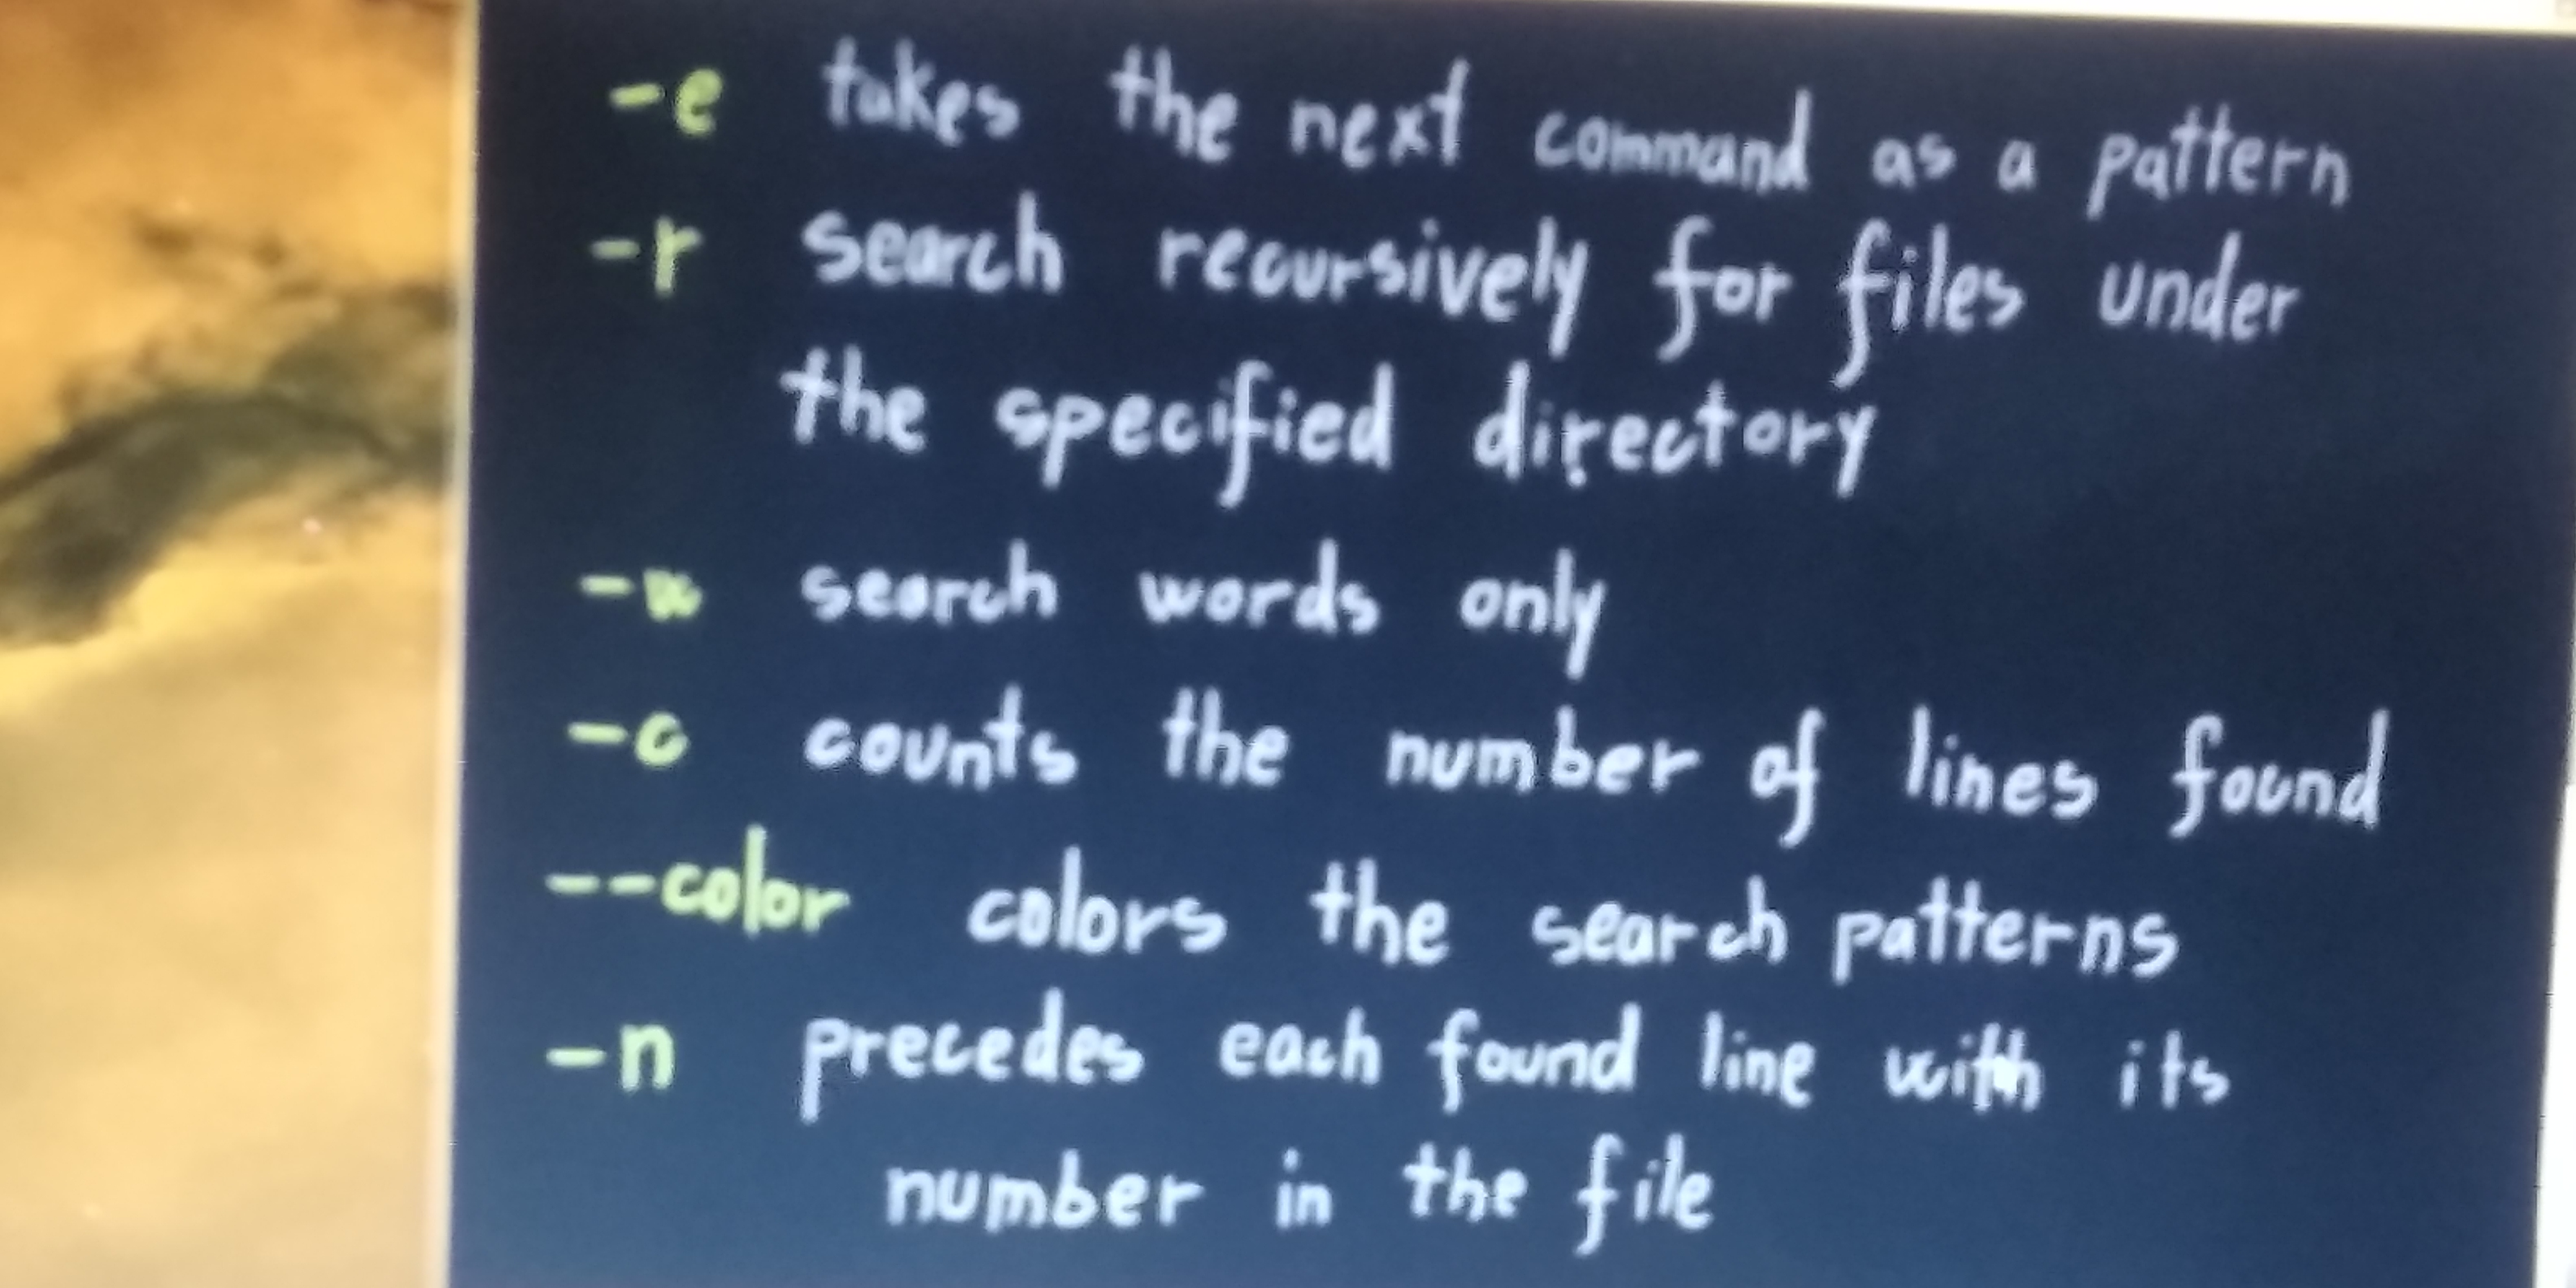 -e takes the next command as a pattern
-r search recursively for files under
the specified directory
-w search words only
-c counts the number of lines found
--color colors the search patterns
-n precedes each found line with its
number in the file